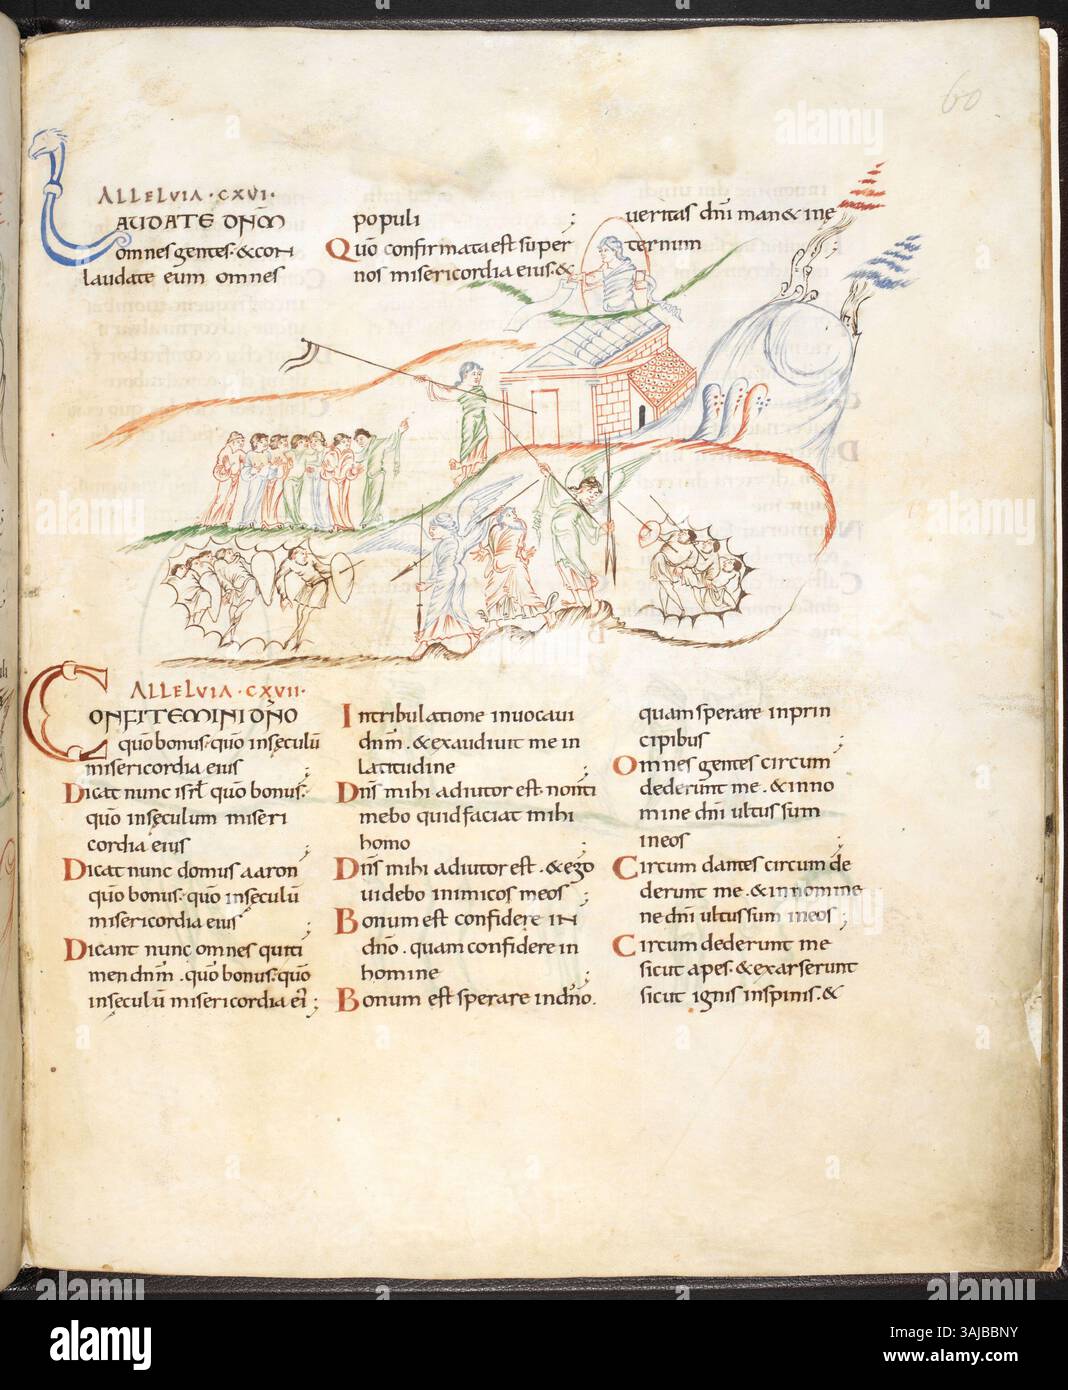 60
ALLELUIA · CXVI ·
LAUDATE DNM
omnes gentes · & con
laudate eum omnes
populi ;
Quō confirmata est super
nos misericordia eius · &
ueritas dn̄i man& in ę
ternum
ALLELUIA · CXVII ·
CONFITEMINI DN̄O
quō bonus · quō in sęculū
misericordia eius ;
Dicat nunc isrl quō bonus ·
quō in sęculum miseri
cordia eius ;
Dicat nunc domus aaron
quō bonus · quō in sęculū
misericordia eius ;
Dicant nunc omnes qui ti
men dnm̄ . quō bonus · quō
in sęculū misericordia ei' ;
In tribulatione inuocaui
dnm̄ . & exaudiuit me in
latitudine ;
Dn̄s mihi adiutor est · non ti
mebo quid faciat mihi
homo ;
Dn̄s mihi adiutor est . & ego
uidebo inimicos meos ;
Bonum est confidere in
dn̄o . quam confidere in
homine ;
Bonum est sperare in dn̄o .
quam sperare in prin
cipibus ;
Omnes gentes circum
dederunt me . & in no
mine dn̄i ultus sum
in eos ;
Circum dantes circum de
derunt me . & in nomine
ne dn̄i ultus sum in eos ;
Circum dederunt me
sicut apes · & exarserunt
sicut ignis in spinis · &
alamy
Image ID: 3AJBBNY
www.alamy.com